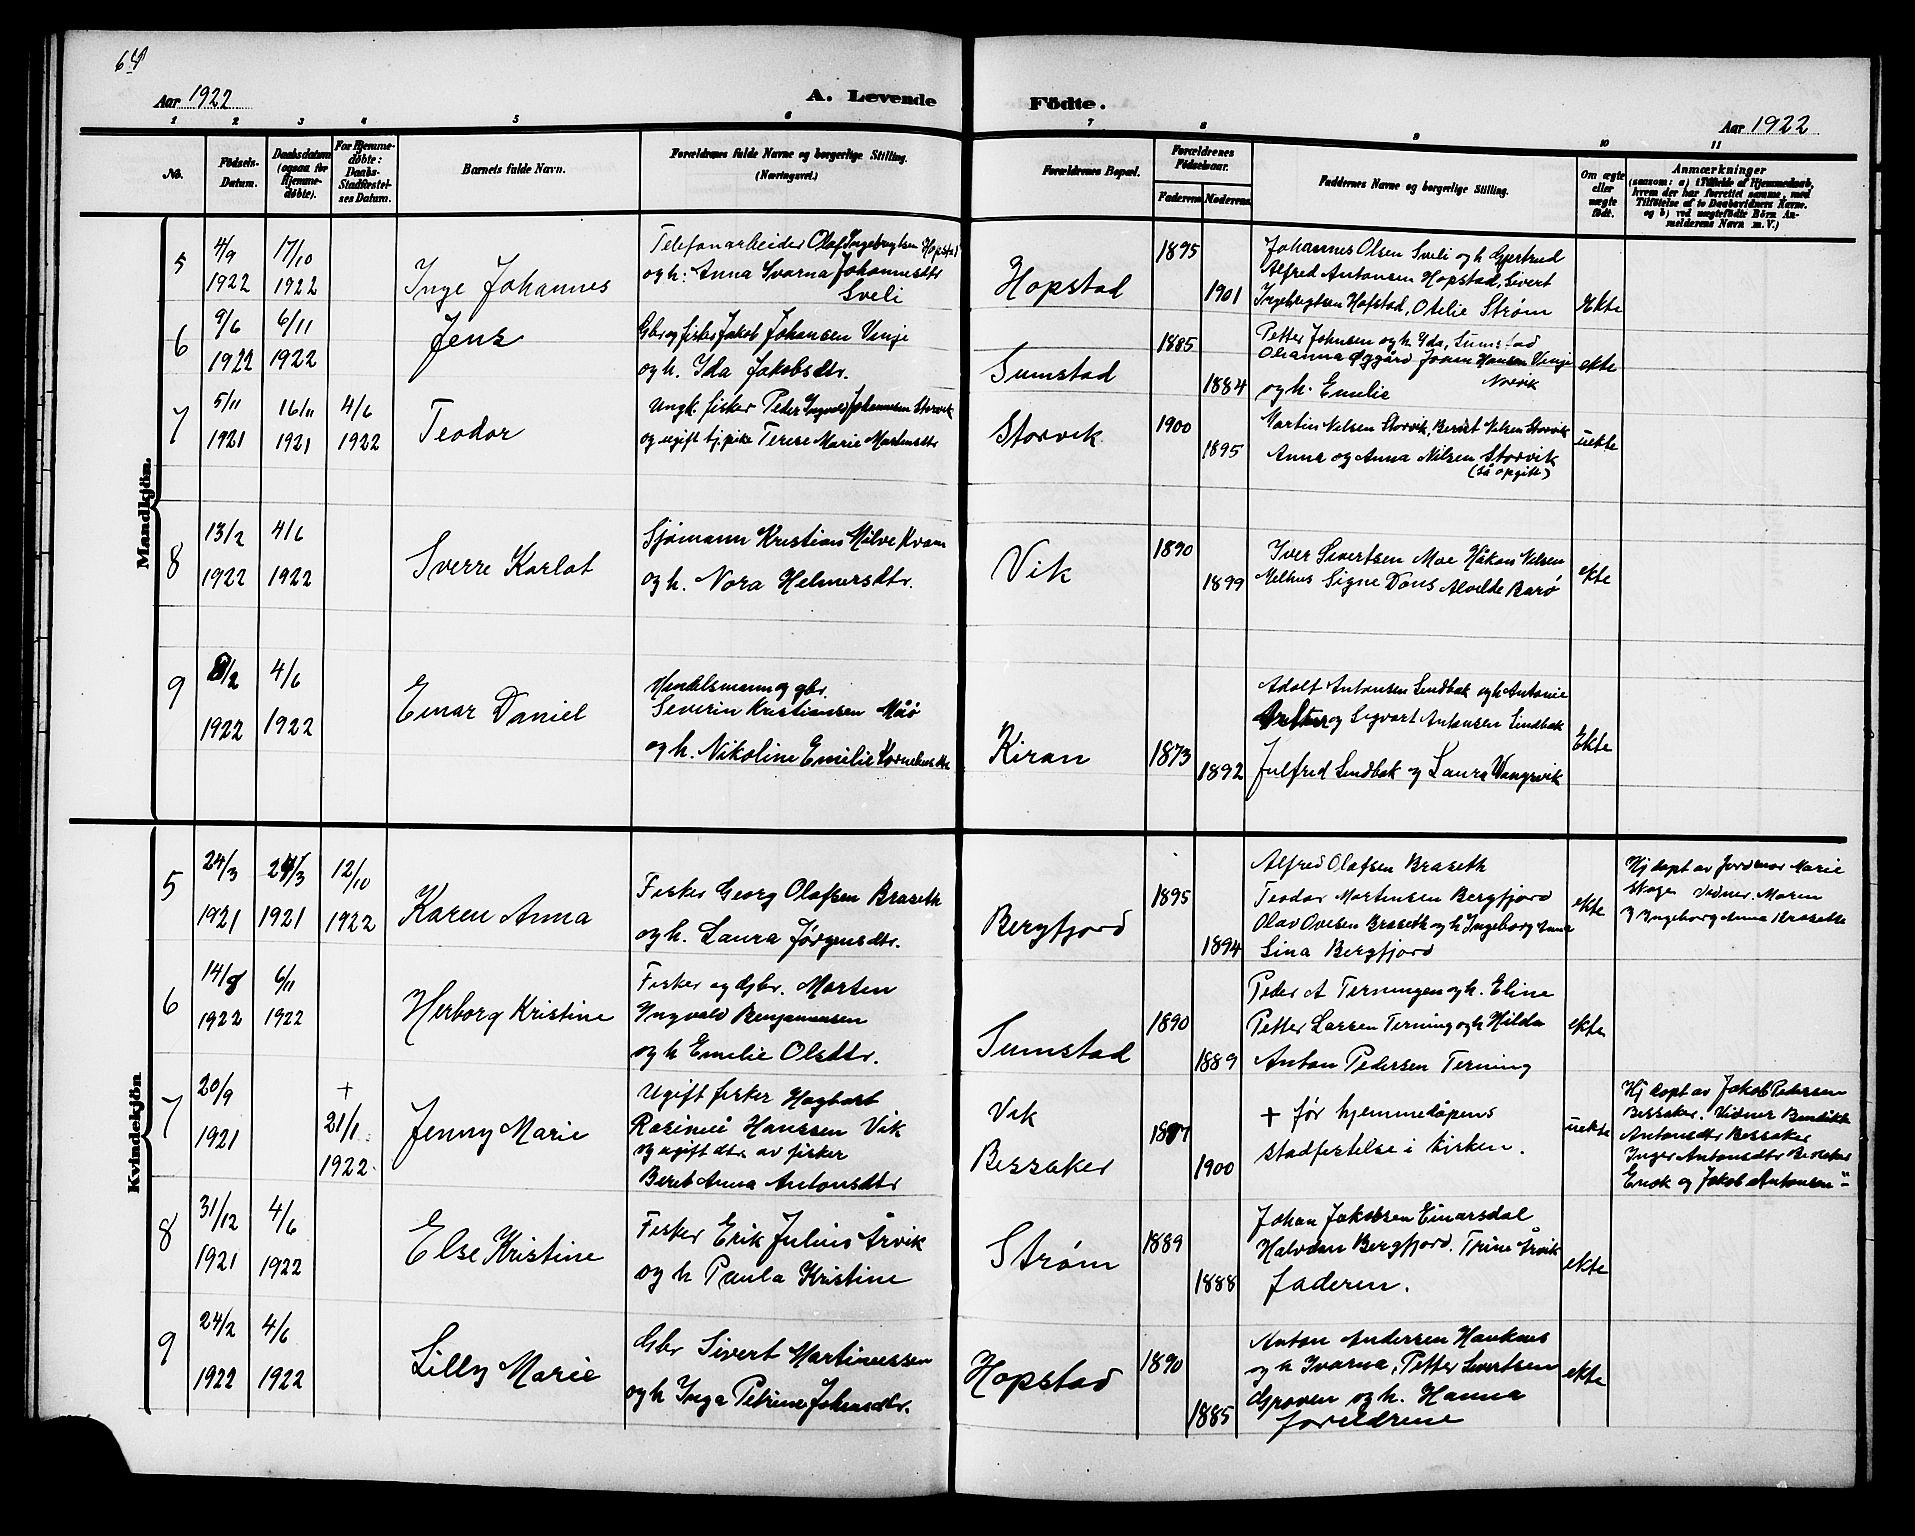 64
Aar 1922
A. Levende
Födte.
Aar 1922
1 2 3 4 5 6 7 8 9 10 11
No.
Födsels-Datum.
Daabsdatum (ogsaa for Hjemme-døbte).
For Hjemme-døbte: Daabs-Stadfæstel-ses Datum.
Barnets fulde Navn.
Forældrenes fulde Navne og borgerlige Stilling. (Næringsvei.)
Forældrenes Bopæl.
Forældrenes Födselsaar.
Faderens Moderens
Faddernes Navne og borgerlige Stilling.
Om ægte eller uægte födt.
Anmærkninger
(saasom: a) i Tilfælde af Hjemmedaab,
hvem der har forrettet samme, med
Tilföielse af to Daabsvidners Navne.
og b) ved uægtefödte Börn An-
melderens Navn m. V.)
Mandkjön.
5 4/9 1922 17/10 1922 Inge Johannes
Telefonarbeider Olaf Ingebrigtsen Hopstad
og h: Anna Svorna Johannesdtr
Sveli
Hopstad 1895 1901
Johannes Olsen Sveli og h Gjertrud
Alfred Antonsen Hopstad, Sivert
Ingebrigtsen Hofstad, Otelie Strøm
Ekte
6 9/6 1922 6/11 1922 Jens
Gbr og fisker Jakob Johansen Vinje
og h. Ida Jakobsdtr.
Sumstad 1885 1884
Petter Johnsen og h Ida, Sumstad
Olianna Oggård Joann Hansen Vinje
og h. Emelie
ekte
7 5/11 1921 16/11 1921 4/6 1922 Teodor
Ungk. fisker Peder Ingvald Johannesen Storvik
og ugift tj.pike Terese Marie Martensdtr
Storvik 1900 1895
Martin Nelsen Storvik, Berdst Nelsen Storvik
Anna og Anna Nilsen Storvik
(så opgitt)
uekte
8 13/2 1922 4/6 1922 Sverre Karlot
Sjømann Kristian Milve Kvam
og h. Nora Helmersdtr.
Vik 1890 1899
Iver Sivertsen Moe Håkon Nilsen
Melhus Signe Dons Alvilde Barø
ekte
9 8/2 1922 4/6 1922 Einar Daniel
Handelsmann og gbr.
Severin Kristiansen Måø
og h. Nikoline Emelie Korneliusdtr
Kiran 1873 1892
Adolf Antonsen Lindbak og h Antonie
og Sigvart Antonsen Lindbak
Julfred Lindbak og Laura Vangsvik
Ekte
Kvindekjön.
5 24/3 1921 24/3 1921 12/10 1922 Karen Anna
Fisker Georg Olafsen Braseth
og h. Laura Jørgensdtr.
Bergfjord 1895 1894
Alfred Olafsen Braseth
Teodor Mortensen Bergfjord
Olav Ovesen Braseth og h Ingeborg Anna
Lina Bergfjord
ekte
Hj døpt av Jordmor Marie
Skage Vidner. Maren
J Ingeborg Anna Braseth
6 14/8 1922 6/11 1922 Herborg Kristine
Fisker og Gbr. Morten
Ingvald Benjaminsen
og h Emelie Olsdtr.
Sumstad 1890 1889
Peder A Terningen og h. Eline
Petter Larsen Terning og h Hilda
Anton Pedersen Terning
ekte
7 20/9 1921 + 21/1 1922 Jenny Marie
Ugift fisker Hagbart
Rasinui Hanssen Vik
og ugift dtr av fisker
Beret Anna Antonsdtr
Vik
Bessaker
1897 1900
+ før hjemmedåpens
stadfestelse i kirken.
uekte
Hj døpt av Jakob Petersen
Bessaker. Vidner Bendikte
Antonsdtr Bessaker
Inger Antonsdtr Bessaker
Enok og Jakob Antonsen "-
8 31/12 1921 4/6 1922 Else Kristine
Fisker Erik Julius Årvik
og h Paula Kristine
Strøm 1889 1888
Johan Jakobsen Einarsdal
Halvdan Bergfjord. Trine Årvik
faderen.
ekte
9 24/2 1922 4/6 1922 Lilly Marie
Gbr Sivert Martinussen
og h Inga Petrine Johansdtr.
Hopstad 1890 1885
Anton Andersen Hauknes
og h Ivarna, Petter Sivertsen
Grøven og h. Hanna
foreldrene
ekte